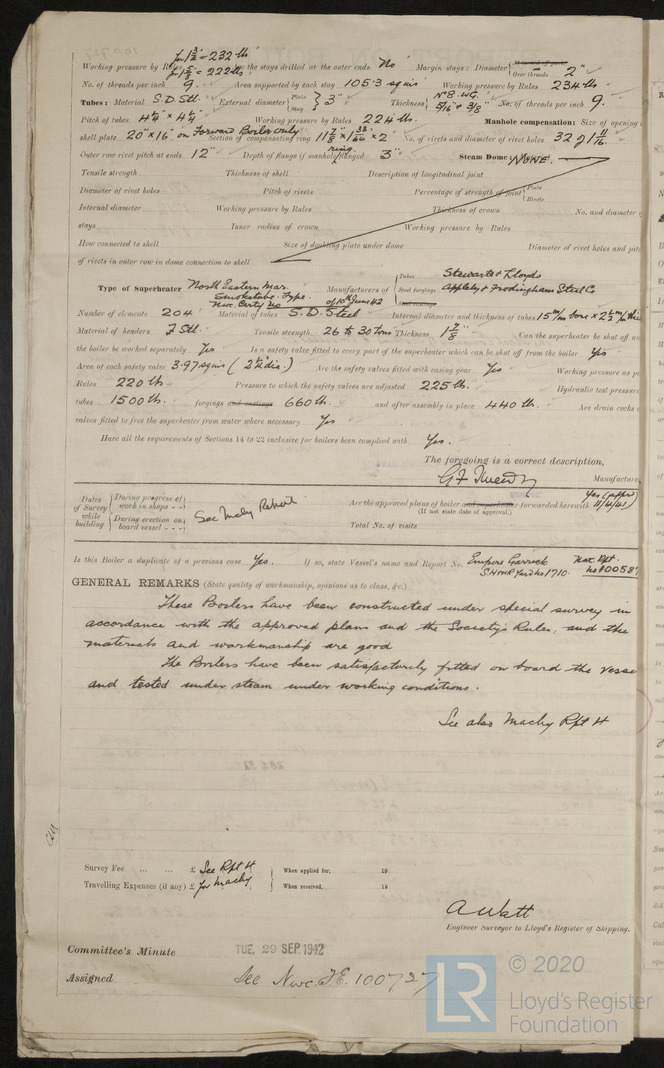 for 1 3/2" = 232 lb
Working pressure by Rules for 1 5/8" = 222 lbs the stays drilled at the outer ends No Margin stays: Diameter Over threads 2"
No. of threads per inch 9. Area supported by each stay 105.3 sq ins Working pressure by Rules 234 lb
Tubes: Material S.D. Stl. External diameter Plain Stay 3" Thickness No 8 WG. 5/16" & 3/8" No. of threads per inch 9.
Pitch of tubes 4¼" x 4¼" Working pressure by Rules 224 lb. Manhole compensation: Size of opening
shell plate 20" x 16" on Forward Boiler only Section of compensating ring 11 7/8" x 1 33/64" x 2 No. of rivets and diameter of rivet holes 32 of 1 11/16"
Outer row rivet pitch at ends 12" Depth of flange if manhole ring flanged 3" Steam Dome NONE.
Tensile strength Thickness of shell Description of longitudinal joint
Diameter of rivet holes Pitch of rivets Percentage of strength of joint Plate Rivets
Internal diameter Working pressure by Rules Thickness of crown No. and diameter
stays Inner radius of crown Working pressure by Rules
How connected to shell Size of doubling plate under dome Diameter of rivet holes and pitch
of rivets in outer row in dome connection to shell
Type of Superheater North Eastern Mar. Smoketube Type. Manufacturers of Tubes Stewarts & Lloyds
Nwc. Certy No of 10th June 42 Steel forgings Appleby & Frodingham Steel Co
Number of elements 204 Material of tubes S.D. Steel Internal diameter and thickness of tubes 15 m/m bore x 2½ m/m thic
Material of headers F Stl Tensile strength 26 to 30 tons Thickness 1 7/8" Can the superheater be shut off an
the boiler be worked separately Yes Is a safety valve fitted to every part of the superheater which can be shut off from the boiler Yes
Area of each safety valve 3.97 sq ins (2¼" dia.) Are the safety valves fitted with easing gear Yes Working pressure as pe
Rules 220 lb Pressure to which the safety valves are adjusted 225 lb. Hydraulic test pressure
tubes 1500 lb. forgings and castings 660 lb. and after assembly in place 440 lb. Are drain cocks o
valves fitted to free the superheater from water where necessary Yes
Have all the requirements of Sections 14 to 22 inclusive for boilers been complied with Yes.
The foregoing is a correct description,
G F Tweedy Manufacture
Dates of Survey while building During progress of work in shops - - During erection on board vessel - - - See Mchy Report Are the approved plans of boiler and superheater forwarded herewith Yes (appro) 11/4/41)
(If not state date of approval.)
Total No. of visits
Is this Boiler a duplicate of a previous case Yes. If so, state Vessel's name and Report No. Empire Garrick Nwc. Rpt.
SH&WR Yard No 1710. No 10058
GENERAL REMARKS (State quality of workmanship, opinions as to class, &c.)
These Boilers have been constructed under special survey in
accordance with the approved plans and the Society's Rules, and the
materials and workmanship are good
The Boilers have been satisfactorily fitted on board the vesse
and tested under steam under working conditions.
See also Machy Rpt 4
Survey Fee ... ... £ See Rpt 4 When applied for, 19
Travelling Expenses (if any) £ for Machy When received, 19
A Watt
Engineer Surveyor to Lloyd's Register of Shipping.
Committee's Minute TUE. 29 SEP 1942
Assigned See Nwc. F.E. 100727
LR © 2020
Lloyd's Register
Foundation